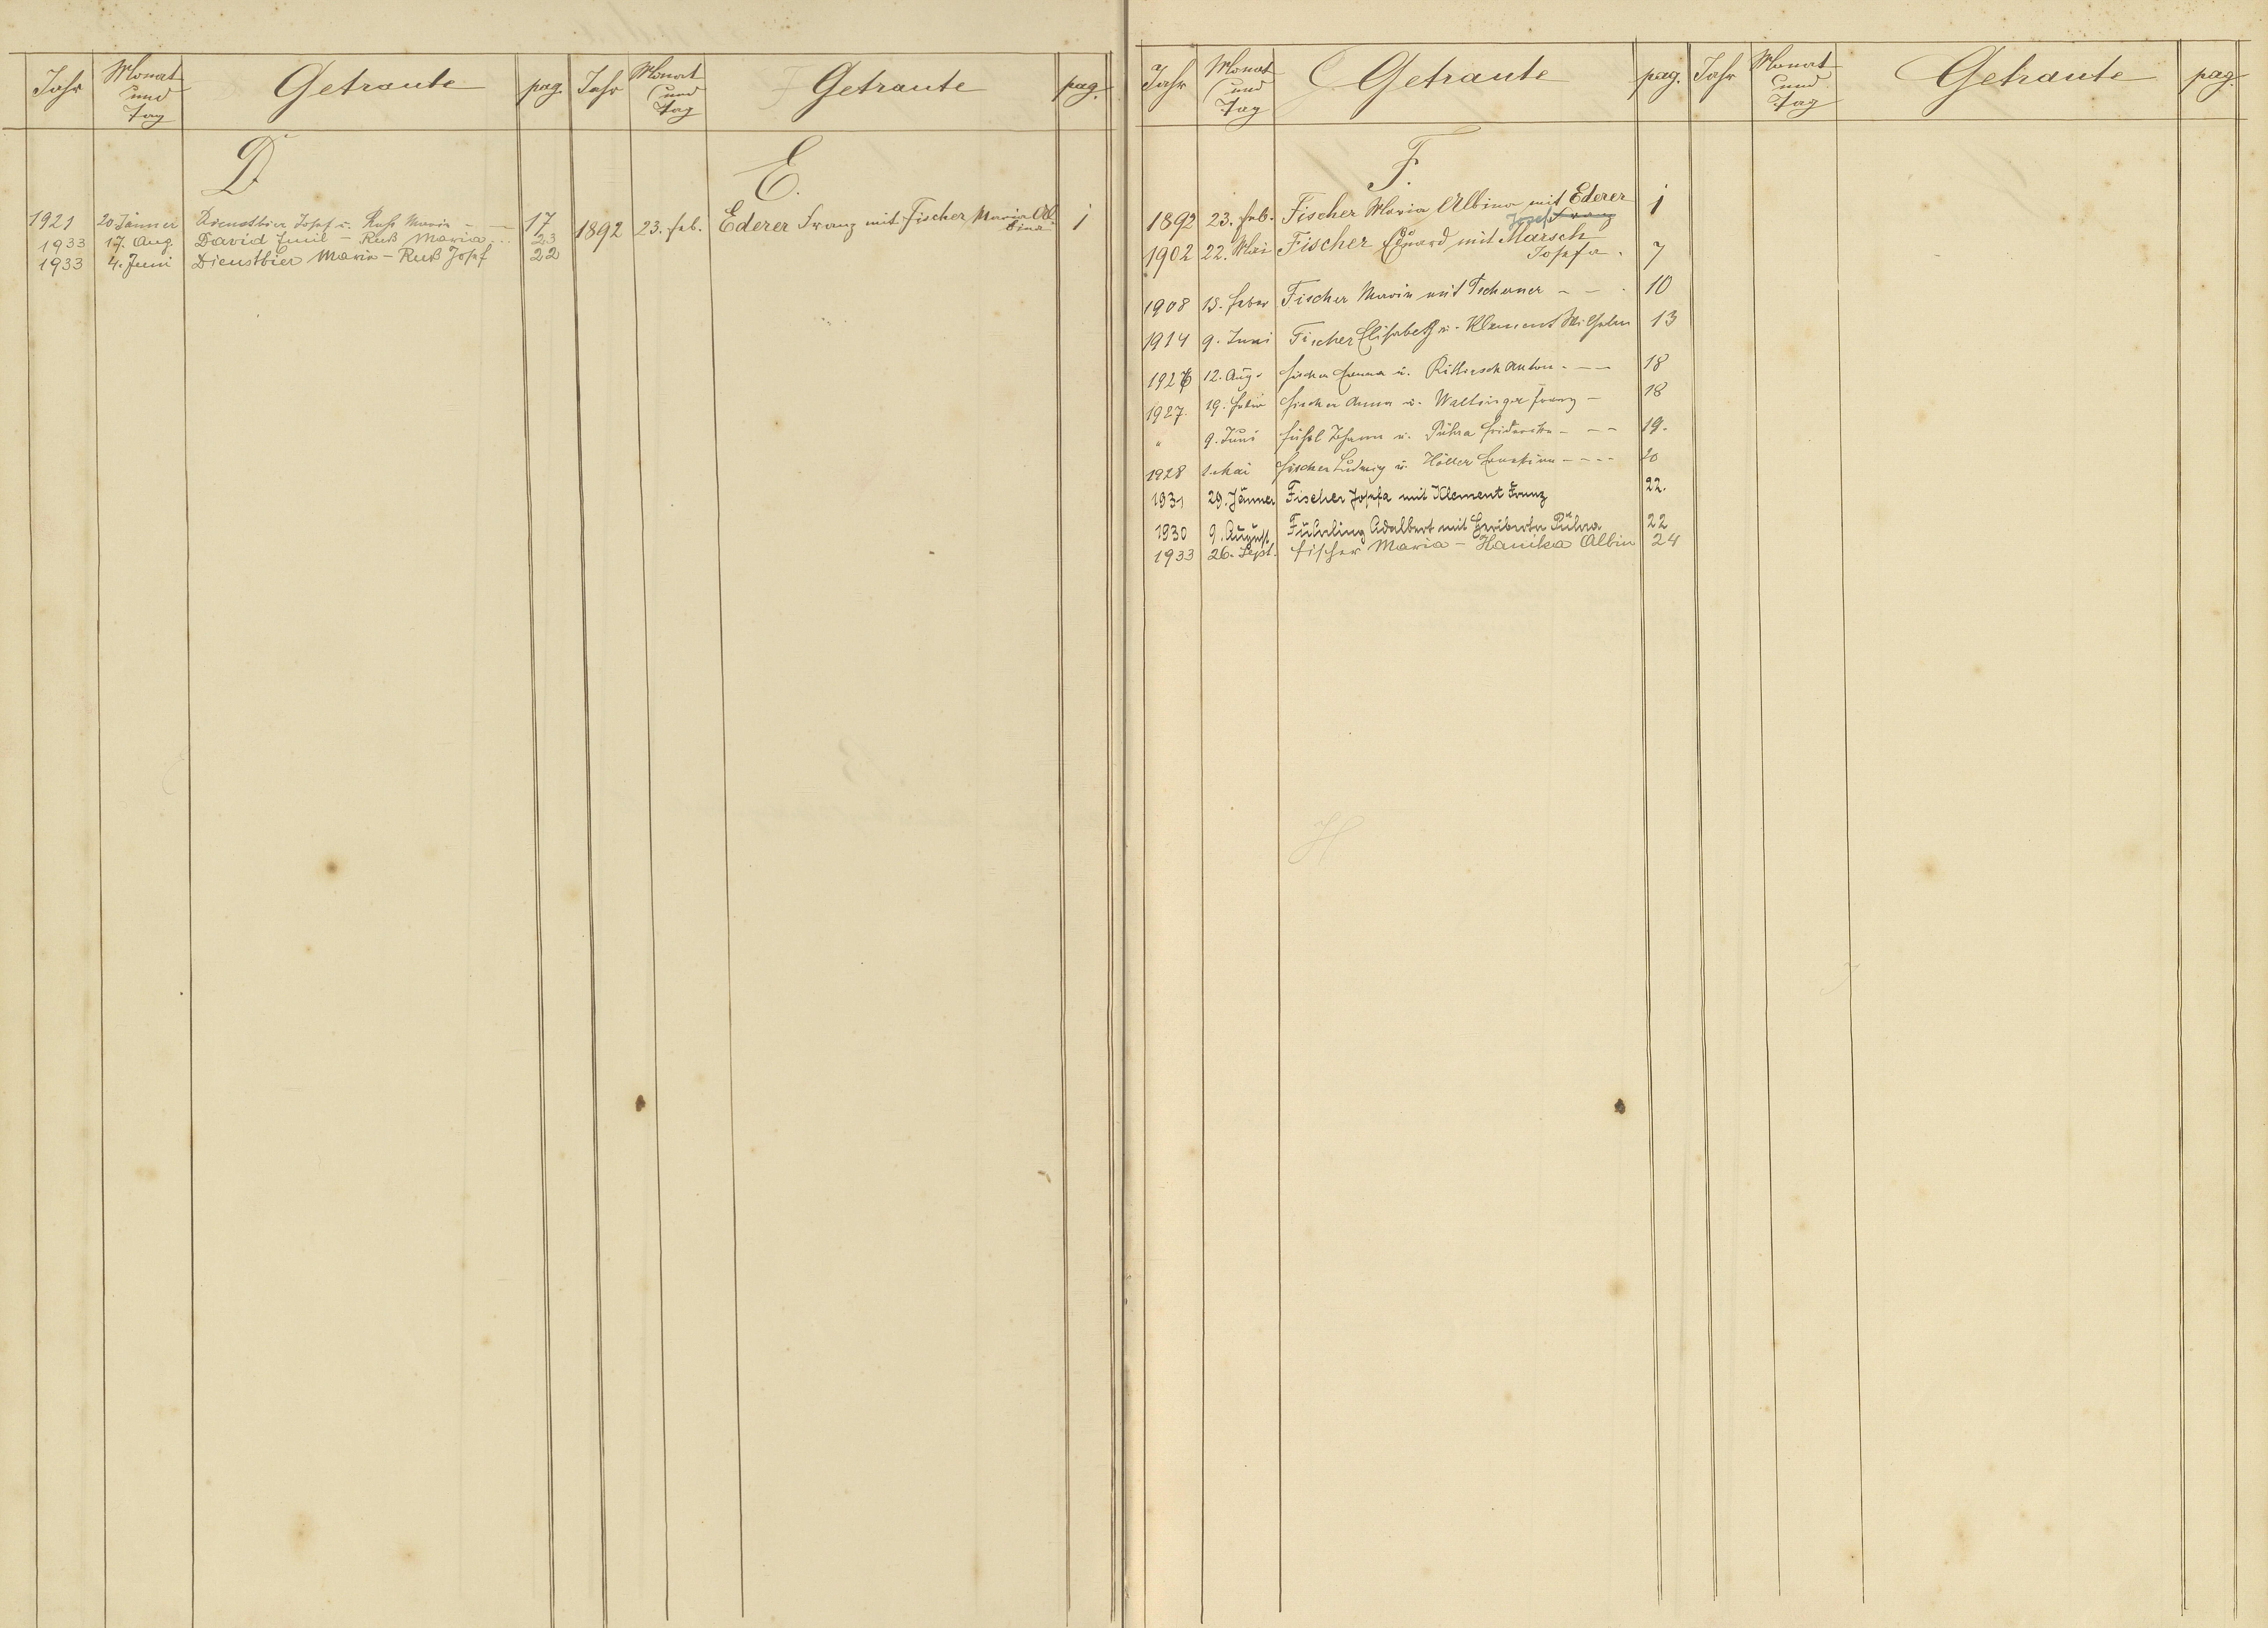 Jahr Monat und Tag Getraute pag. Jahr Monat und Tag Getraute pag.
D
1921 20. Jänner Dienstbier Josef u. Ruß Maria - - 17
1933 17. Aug David Emil - Ruß Maria . . . 23
1933 4. Juni Dienstbier Maria - Ruß Josef 22
E.
1892 23. Feb. Ederer Franz mit Fischer Maria Al-
bina 1
Jahr Monat und Tag Getraute pag. Jahr Monat und Tag Getraute pag.
F.
1892 23. Feb. Fischer Maria Albina mit Ederer 1
Josef Franz
1902 22. Mai Fischer Eduard mit Marsch
Josefa . 7
1908 15. Feber Fischer Maria mit Tscherner - - . 10
1914 9. Juni Fischer Elisabeth u. Klement Wilhelm 13
1926 12. Aug. Fischer u. Anton - - - 18
1927. 19. Feber Fischer Anna u. Waltinger Franz - 18
" 9. Juni Johann u. Pühra - - - 19.
1928 1. Mai Fischer Ludwig u. Höller Ernestine - - - - 20
1931 29. Jänner Fischer Josefa mit Klement Franz 22.
1930 9. August Fühling Adalbert mit Heriberta Pühra 22
1933 26. Sept. Fischer Maria - Hanika Albin 24
H